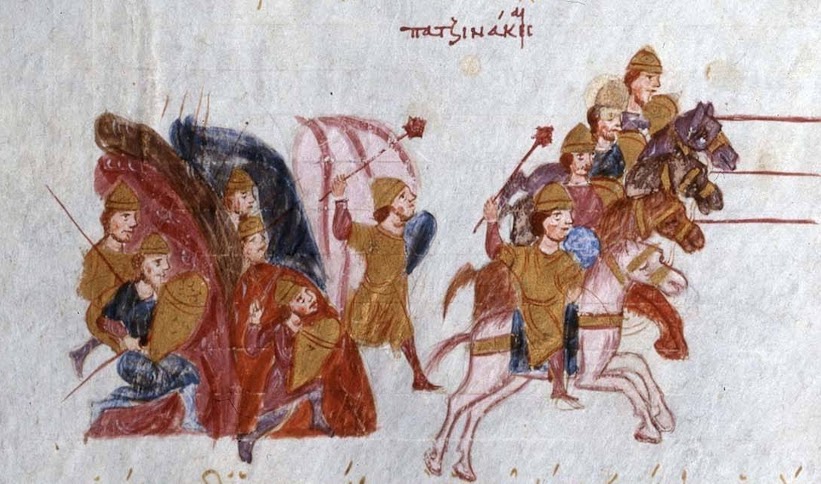 πατζινάκαι